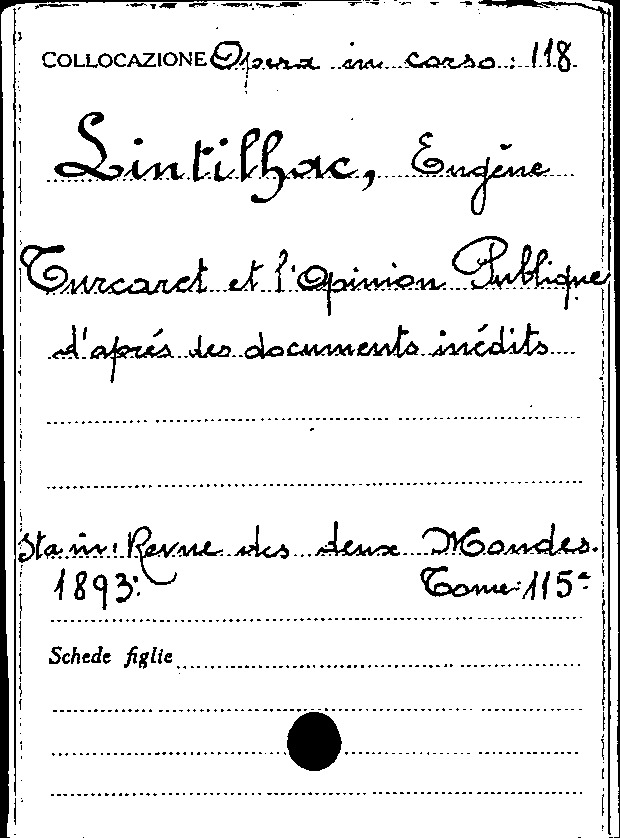 COLLOCAZIONE Opera in corso: 118
Lintilhac, Eugène
Turcaret et l'Opinion Publique
d'aprés des documents inédits
Sta in: Revue des deux Mondes.
1893: Tome: 115-
Schede figlie